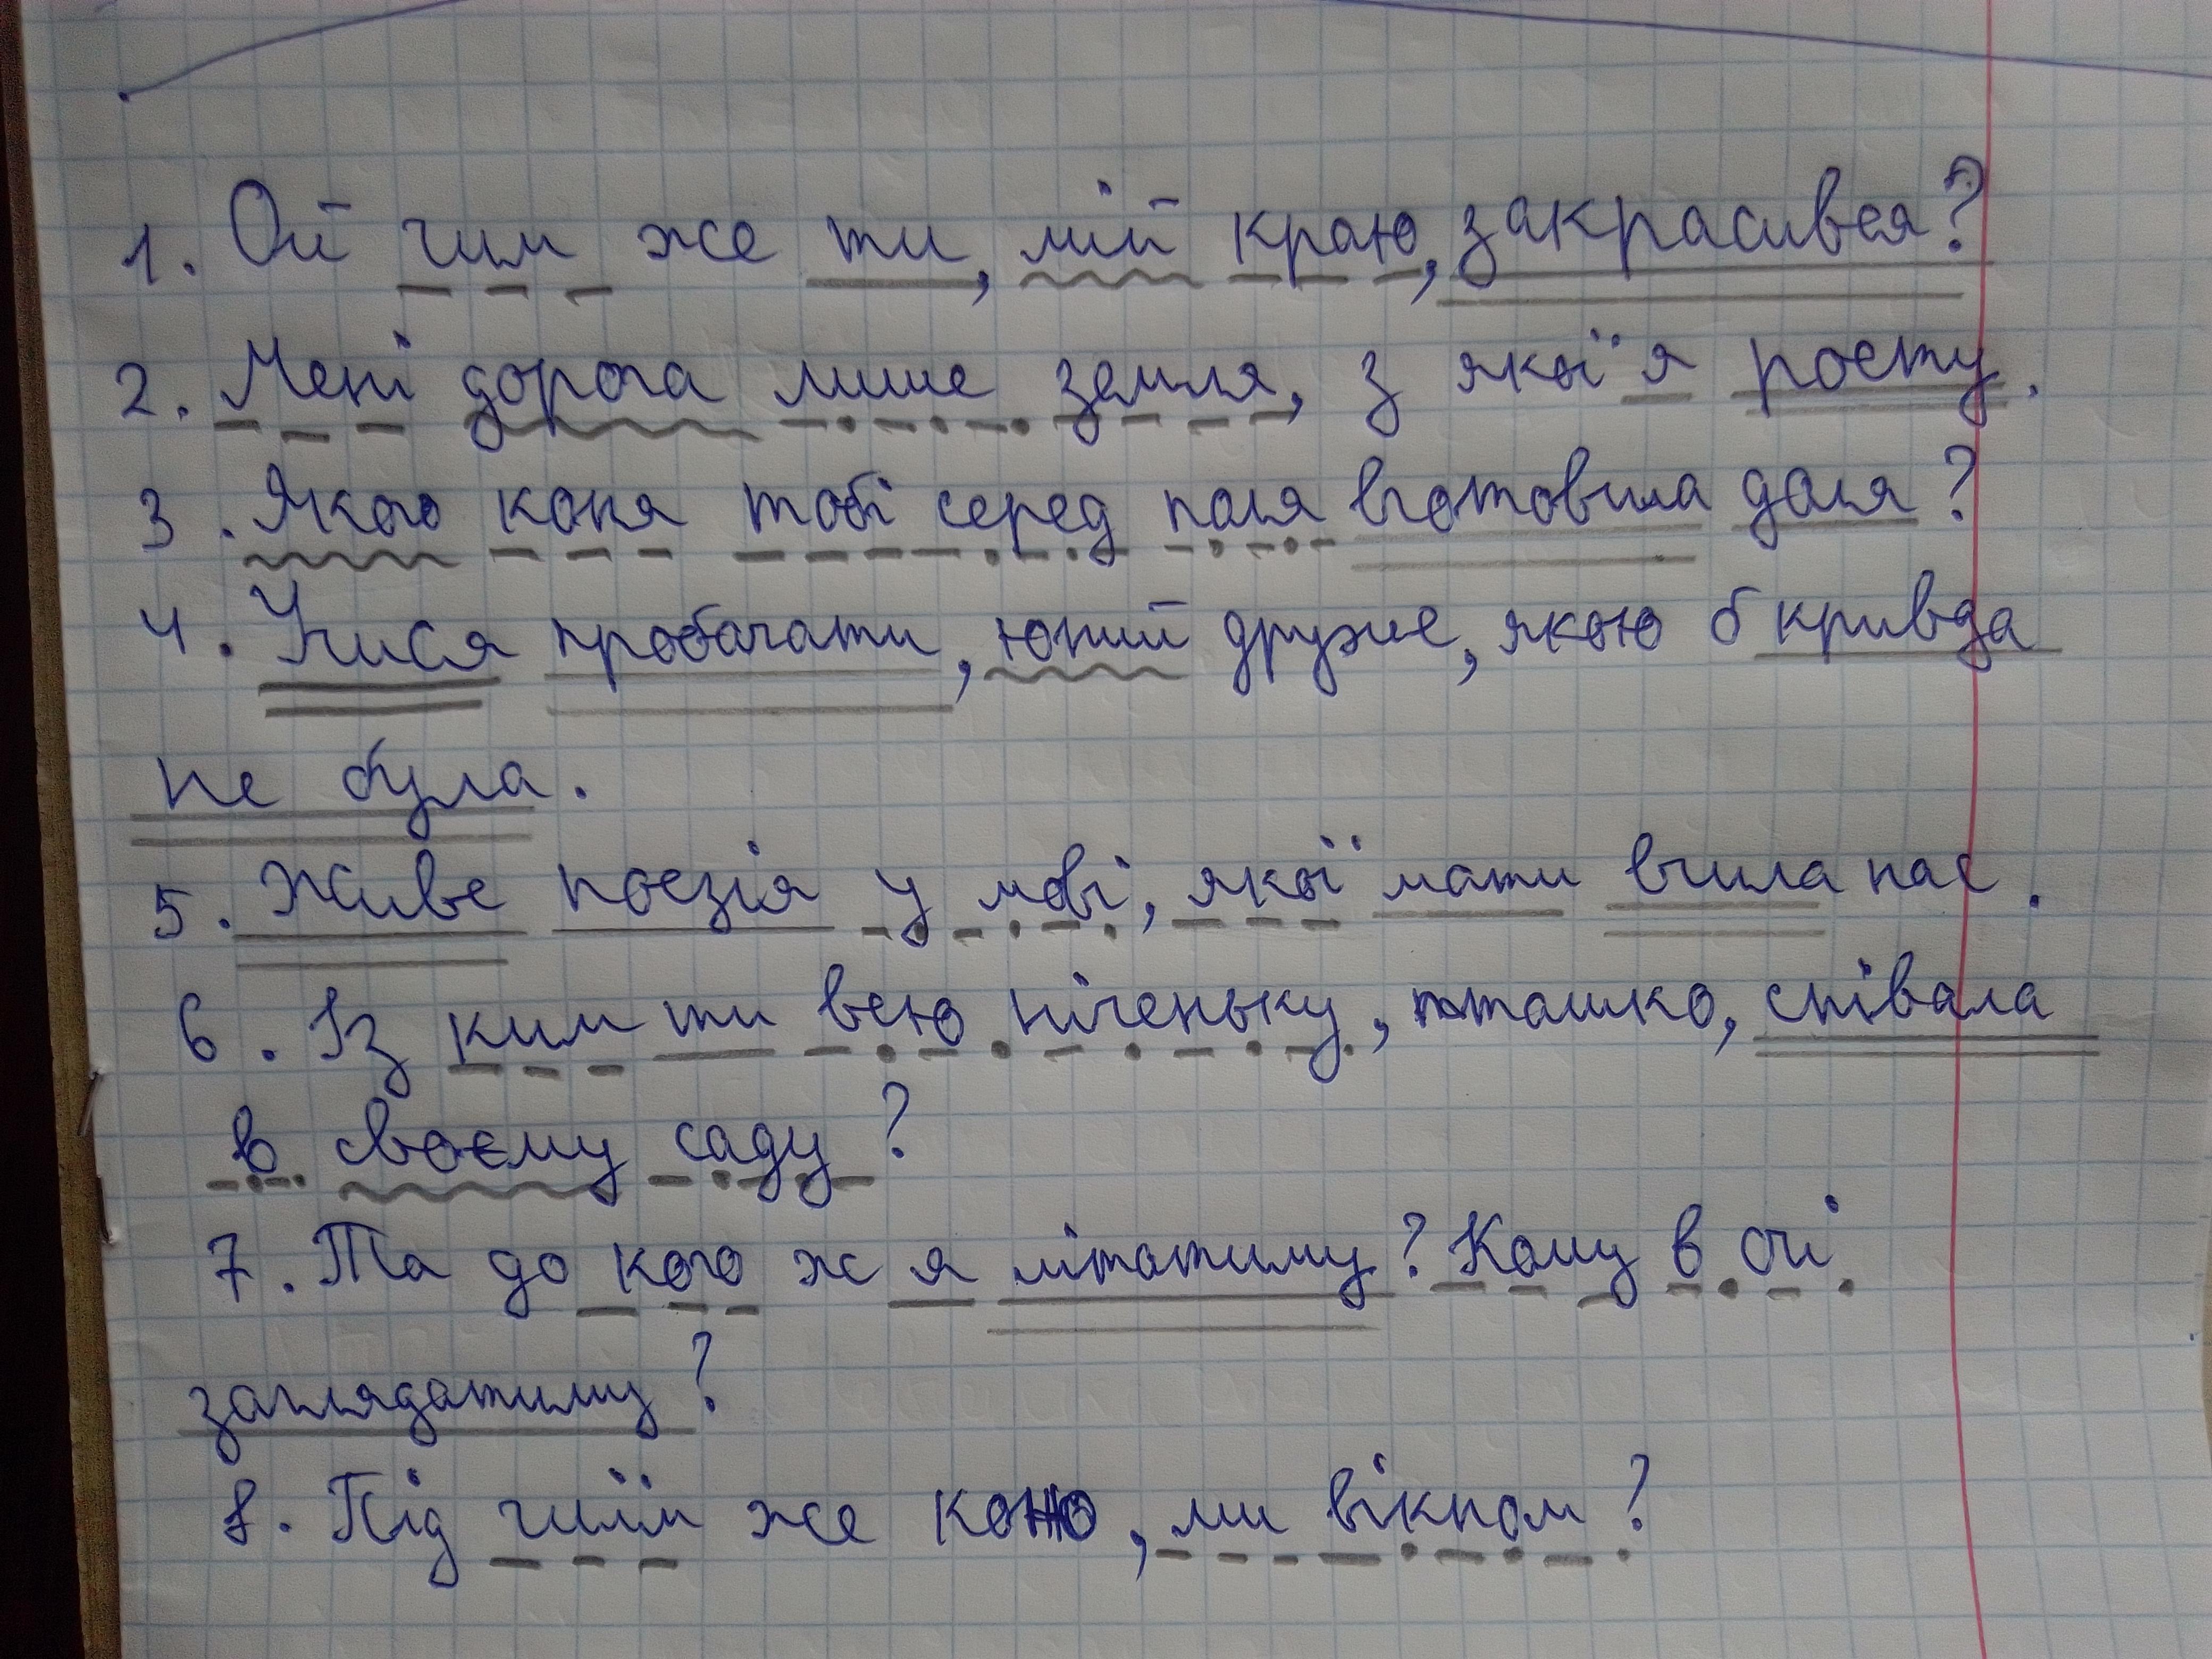 1. Ой чим же ти, мій краю, закрасивея?
2. Мені дорога лише земля, з якої я росту.
3. Якого коня тобі серед поля вготовила доля?
4. Учися пробачати, юний друже, якою б кривда
не була.
5. Живе поезія у мові, якої мати вчила нас.
6. Із ким ти всю ніченьку, пташко, співала
в своєму саду?
7. Та до кого ж я літатиму? Кому в очі
заглядатиму?
8. Під чиїм же , ми вікном?